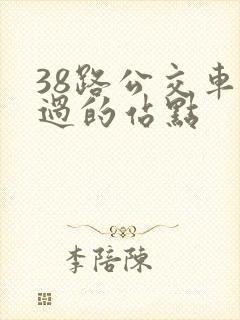 38路公交車
過的佔點
李陪陳